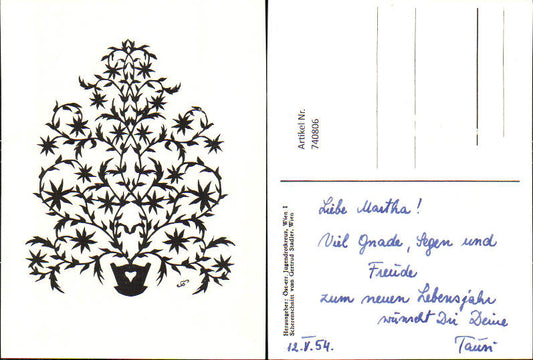 Artikel Nr.
740806
Herausgeber: Österr. Jugendrotkreuz, Wien I
Scherenschnitt von Gertrud Stadler, Wien
Liebe Martha!
Viel Gnade, Segen und
Freude
zum neuen Lebensjahr
wünscht Dir Deine
12.V.54.